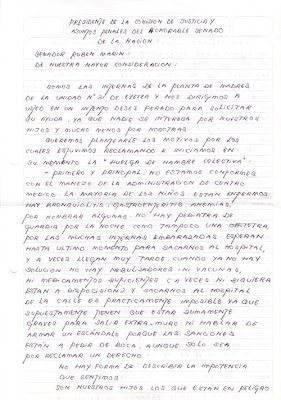 PRESIDENTE DE LA COMISION DE JUSTICIA Y
ASUNTOS PENALES DEL HONORABLE SENADO
DE LA NACION:
SENADOR RUBEN MARIN:
DE NUESTRA MAYOR CONSIDERACION:
SOMOS LAS INTERNAS DE LA PLANTA DE MADRES
DE LA UNIDAD Nº 31 DE EZEIZA Y NOS DIRIGIMOS A
USTED EN UN INTENTO DESESPERADO PARA SOLICITAR
SU AYUDA, YA QUE NADIE SE INTERESA POR NUESTROS
HIJOS Y MUCHO MENOS POR NOSOTRAS.
QUEREMOS PLANTEARLE LOS MOTIVOS POR LOS
CUALES ESTUVIMOS RECLAMANDO E INICIAMOS EN
SU MOMENTO LA "HUELGA DE HAMBRE COLECTIVA":
- PRIMERO Y PRINCIPAL: NO ESTAMOS CONFORMES
CON EL MANEJO DE LA ADMINISTRACION DE CENTRO
MEDICO LA MAYORIA DE LOS NIÑOS ESTAN ENFERMOS
HAY BRONQUIOLITIS, GASTROENTERITIS, ANEMIAS,
POR NOMBRAR ALGUNAS. NO HAY PEDIATRA DE
GUARDIA POR LA NOCHE COMO TAMPOCO UNA OBSTETRA,
POR LAS MUCHAS INTERNAS EMBARAZADAS ESPERAN
HASTA ULTIMO MOMENTO PARA SACARNOS AL HOSPITAL,
Y A VECES LLEGAN MUY TARDE, CUANDO YA NO HAY
SOLUCION. NO HAY NEBULIZADORES, NI VACUNAS,
NI MEDICAMENTOS SUFICIENTES (A VECES NI SIQUIERA
ESTAN A DISPOSICION) Y SACARNOS AL HOSPITAL
DE LA CALLE ES PRACTICAMENTE IMPOSIBLE YA QUE
SUPUESTAMENTE TIENEN QUE ESTAR SUMAMENTE
GRAVES PARA SALIR EXTRA-MURO NI HABLAR DE
ARMAR UN ESCANDALO PORQUE LAS SANCIONES
ESTAN A PEDIR DE BOCA, AUNQUE SOLO SEA
POR RECLAMAR UN DERECHO.
NO HAY FORMA DE DESCRIBIR LA IMPOTENCIA
QUE SENTIMOS.
SON NUESTROS HIJOS LOS QUE ESTAN EN PELIGRO